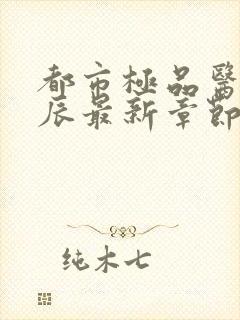 都市極品醫
辰最新章節
纯木七